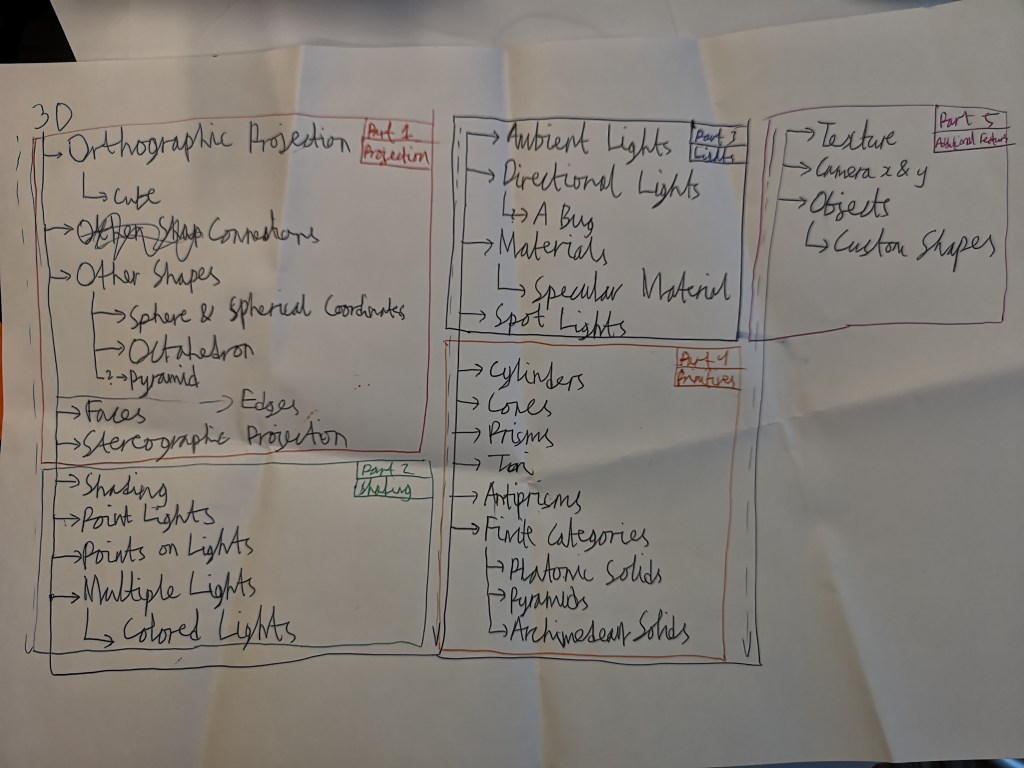 3D
Part 1
Projection
Orthographic Projection
Cube
Connections
Other Shapes
Sphere & Spherical Coordinates
Octahedron
? Pyramid
Faces → Edges
Stereographic Projection
Part 2
Shading
Shading
Point Lights
Points on Lights
Multiple Lights
Colored Lights
Part 3
Lights
Ambient Lights
Directional Lights
A Bug
Materials
Specular Material
Spot Lights
Part 4
Primitives
Cylinders
Cones
Prisms
Tori
Antiprisms
Finite Categories
Platonic Solids
Pyramids
Archimedean Solids
Part 5
Additional Features
Texture
Camera x & y
Objects
Custom Shapes